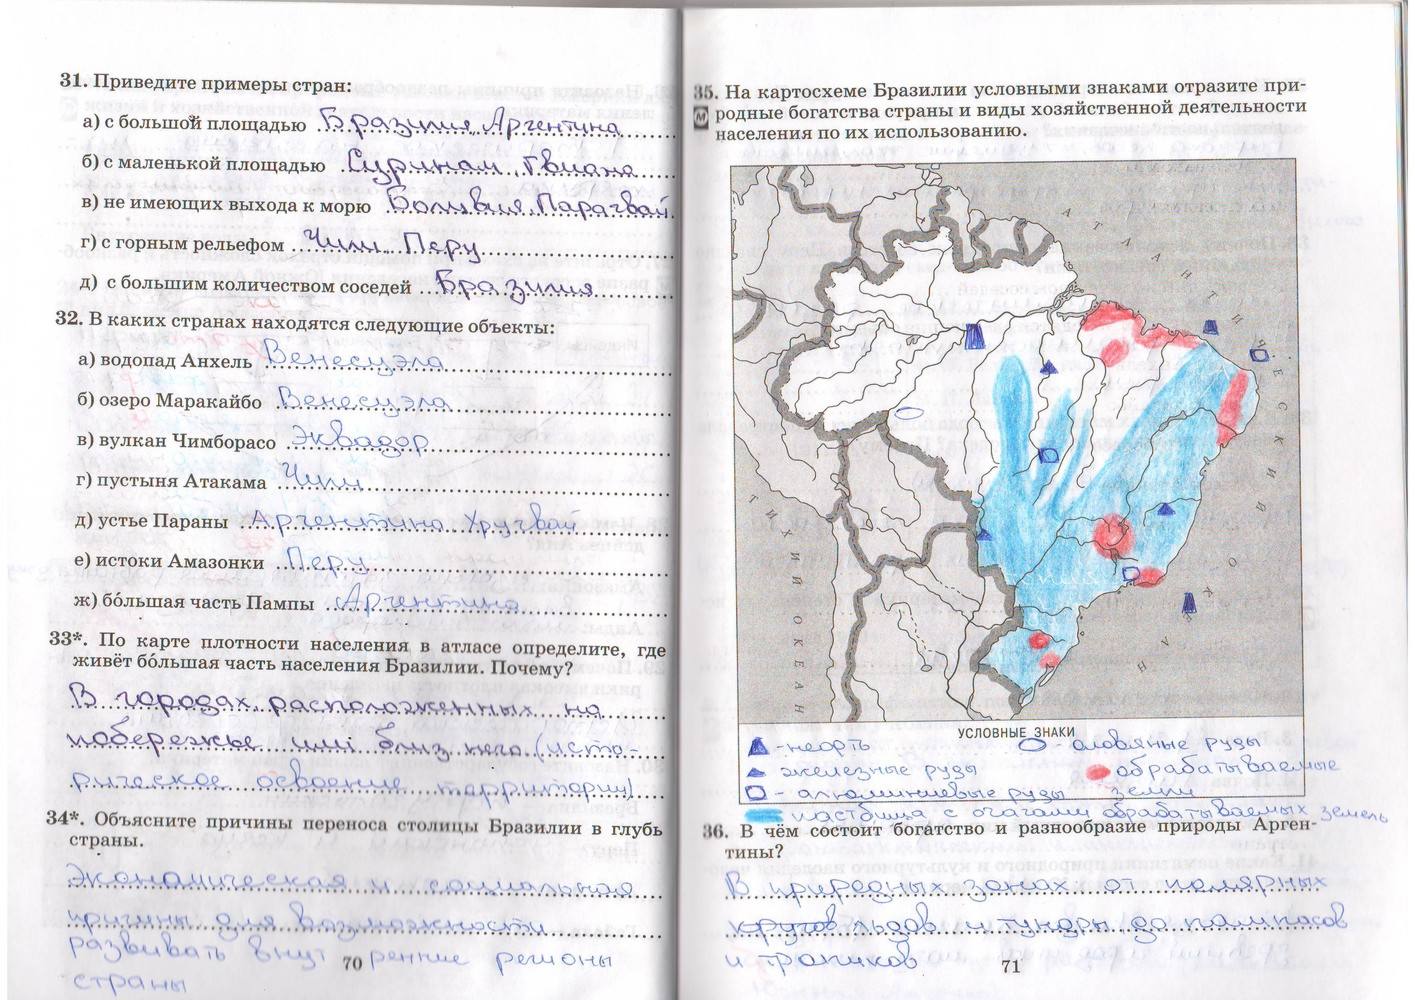 31. Приведите примеры стран:
а) с большой площадью Бразилия, Аргентина
б) с маленькой площадью Суринам, Гвиана
в) не имеющих выхода к морю Боливия, Парагвай
г) с горным рельефом Чили, Перу
д) с большим количеством соседей Бразилия
32. В каких странах находятся следующие объекты:
а) водопад Анхель Венесуэла
б) озеро Маракайбо Венесуэла
в) вулкан Чимборасо Эквадор
г) пустыня Атакама Чили
д) устье Параны Аргентина
е) истоки Амазонки Перу
ж) бо́льшая часть Пампы Аргентина
33*. По карте плотности населения в атласе определите, где
живёт бо́льшая часть населения Бразилии. Почему?
В городах, расположенных на
побережье или близ него (исто-
рическое освоение территории)
34*. Объясните причины переноса столицы Бразилии в глубь
страны.
Экономическая и социальная
причины для возможности
развивать внутренние регионы
страны
70
35. На картосхеме Бразилии условными знаками отразите при-
родные богатства страны и виды хозяйственной деятельности
населения по их использованию.
АТЛАНТИЧЕСКИЙ ОКЕАН
ТИХИЙ ОКЕАН
УСЛОВНЫЕ ЗНАКИ
- нефть - оловяные руды
- железные руды - обрабатываемые
- алюминиевые руды земли
пастбища с очагами обрабатываемых земель
36. В чём состоит богатство и разнообразие природы Арген-
тины?
В природных зонах от полярных
льдов и тундры до пампасов
и тропиков
71